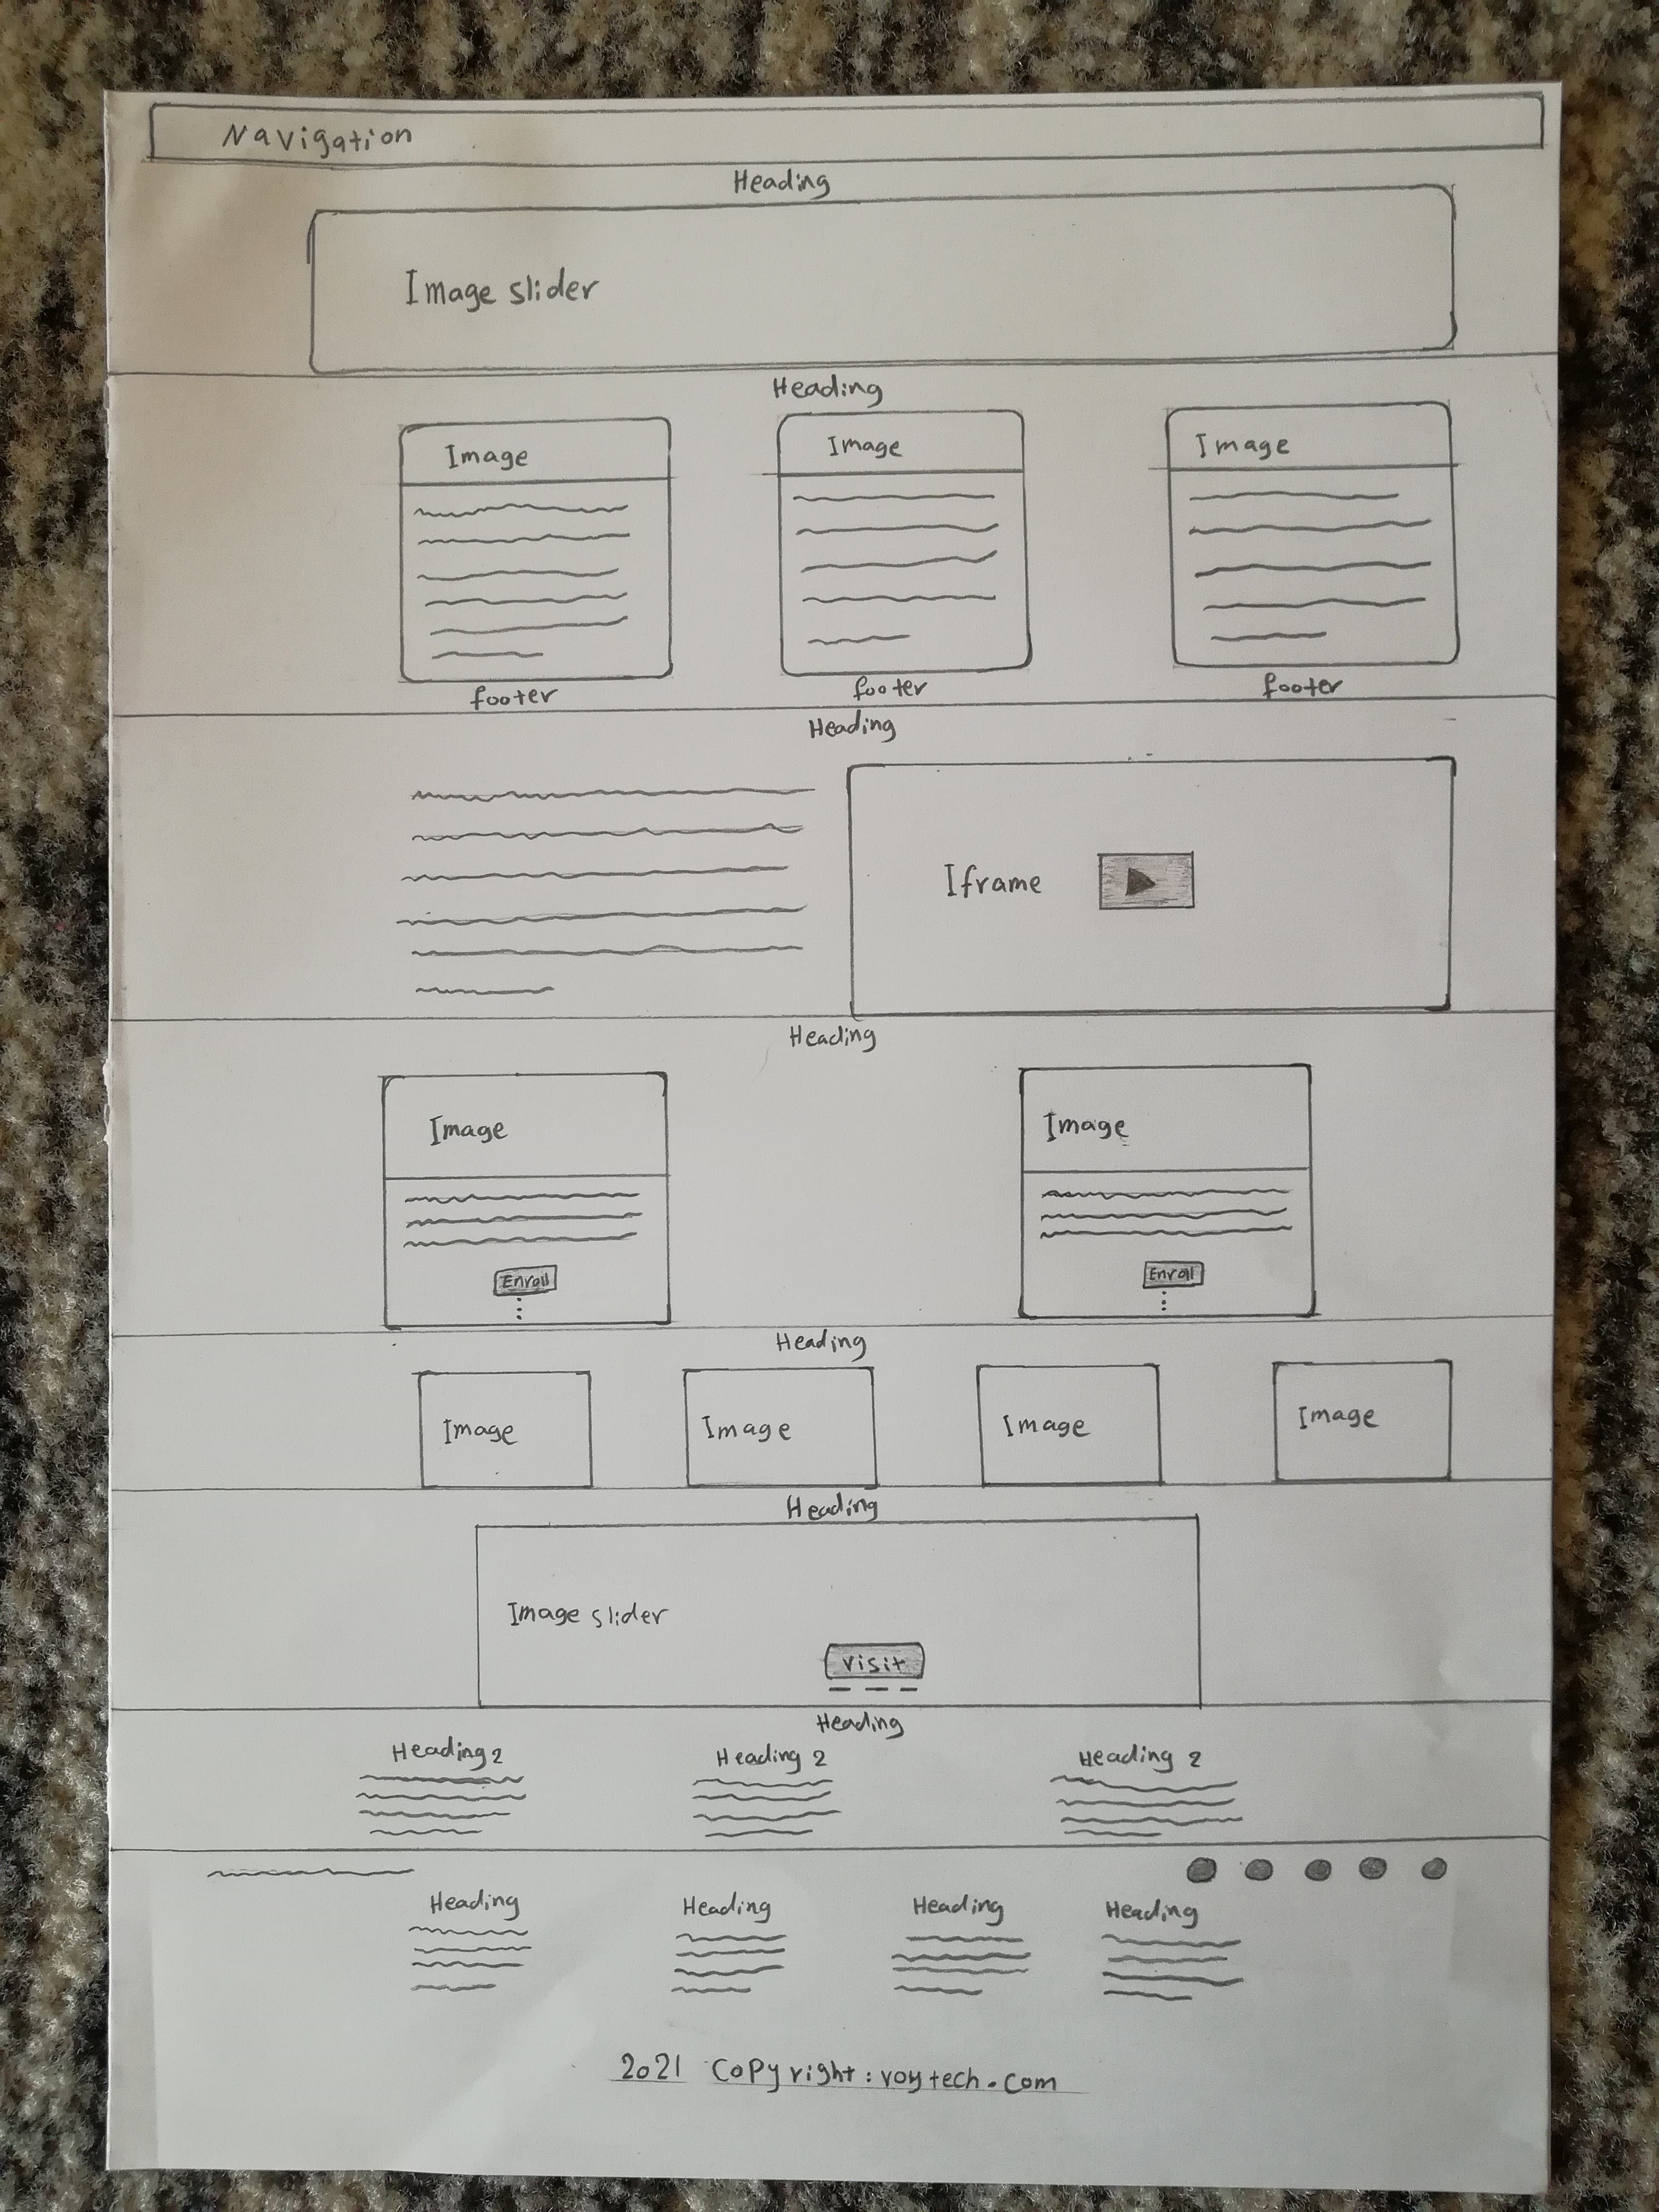 Navigation
Heading
Image slider
Heading
Image Image Image
footer footer footer
Heading
Iframe
Heading
Image Image
Enroll Enroll
Heading
Image Image Image Image
Heading
Image slider
visit
Heading
Heading 2 Heading 2 Heading 2
Heading Heading Heading Heading
2021 Copyright: voytech.com